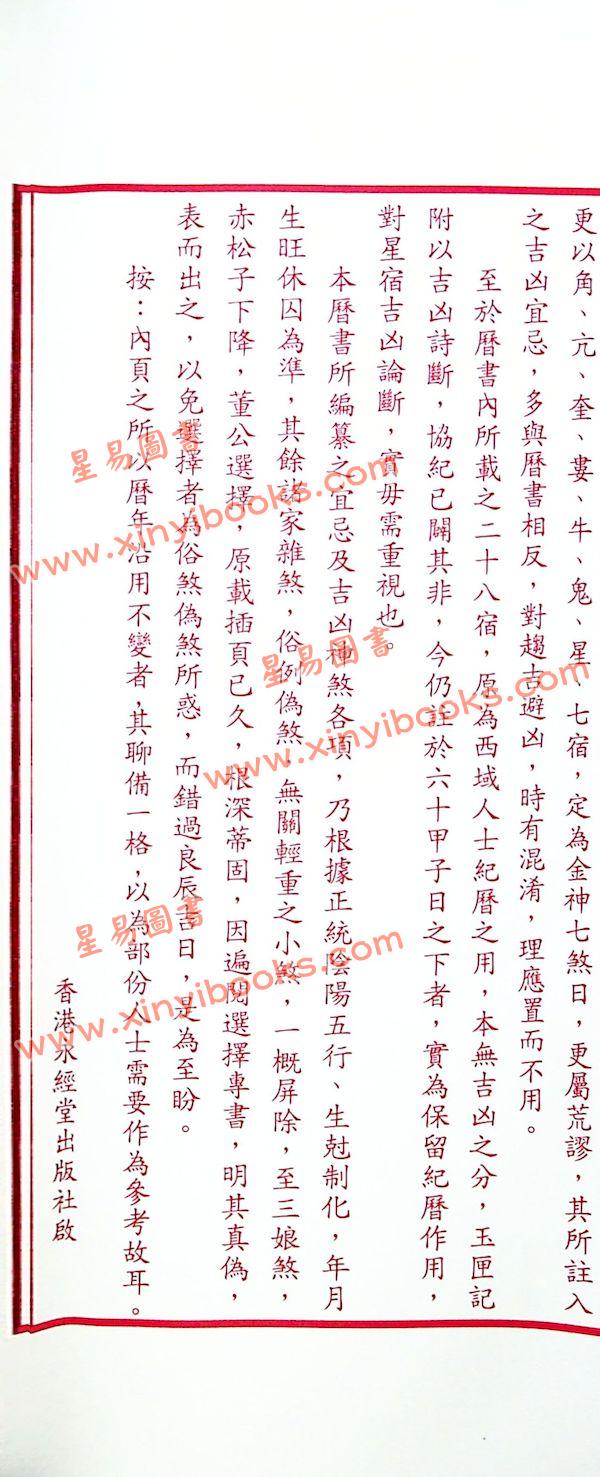 更以角、亢、奎、婁、牛、鬼、星、七宿，定為金神七煞日，更屬荒謬，其所註入
之吉凶宜忌，多與曆書相反，對趨吉避凶，時有混淆，理應置而不用。
至於曆書內所載之二十八宿，原為西域人士紀曆之用，本無吉凶之分，玉匣記
附以吉凶詩斷，協紀已闢其非，今仍註於六十甲子日之下者，實為保留紀曆作用，
對星宿吉凶論斷，實毋需重視也。
本曆書所編纂之宜忌及吉凶神煞各項，乃根據正統陰陽五行、生尅制化，年月
生旺休囚為準，其餘諸家雜煞，俗例偽煞，無關輕重之小煞，一概屏除，至三娘煞，
赤松子下降，董公選擇，原載插頁已久，根深蒂固，因遍閱選擇專書，明其真偽，
表而出之，以免選擇者為俗煞偽煞所惑，而錯過良辰吉日，是為至盼。
按：內頁之所以曆年沿用不變者，其聊備一格，以為部份人士需要作為參考故耳。
香港永經堂出版社啟
星易圖書
www.xinyibooks.com
星易圖書
www.xinyibooks.com
星易圖書
www.xinyibooks.com